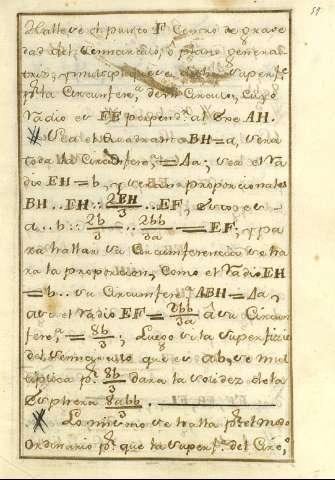 Hallese el punto F, Centro de grave
dad del Semicirculo, o plano genera
triz, y multipliquese la superfᵉ
pʳ la Circunferᵃ de un Circulo, cuyo
Radio es FE perpendʳ al Exe AH.
Sea el Quadrante BH=a, sera
toda la Circunferᵃ=4a; sea el Ra
dio EH=b, y seran proporcionales
BH..EH::2EH/3..EF, esto es
a..b::2b/3..2bb/3a = EF; y pa
ra hallar su Circumferencia se ha
ra la proporcion, Como el Radio EH
=b.. su Circumferᵃ ABH=4a,
asi el Radio EF=2bb/3a a su Circun
ferᵃ=8b/3; Luego si la superficie
del semicirculo que es ab, se mul
tiplica pʳ 8b/3 dara la solidez de la
Esphera 8abb/3.
Lo mismo se halla pʳ el modo
Ordinario pʳ que la superfᵉ del Circᵒ